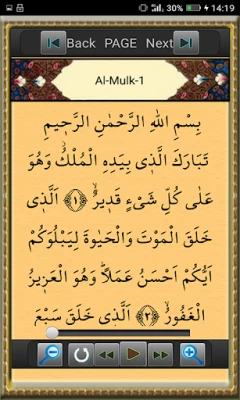 30% 14:19
Back PAGE Next
Al-Mulk-1
بِسْمِ اللهِ الرَّحْمٰنِ الرَّحٖيمِ
تَبَارَكَ الَّذٖى بِيَدِهِ الْمُلْكُ وَهُوَ
عَلٰى كُلِّ شَىْءٍ قَدٖيرٌ ﴿١﴾ اَلَّذٖى
خَلَقَ الْمَوْتَ وَالْحَيٰوةَ لِيَبْلُوَكُمْ
اَيُّكُمْ اَحْسَنُ عَمَلًا وَهُوَ الْعَزٖيزُ
الْغَفُورُ ﴿٢﴾ اَلَّذٖى خَلَقَ سَبْعَ